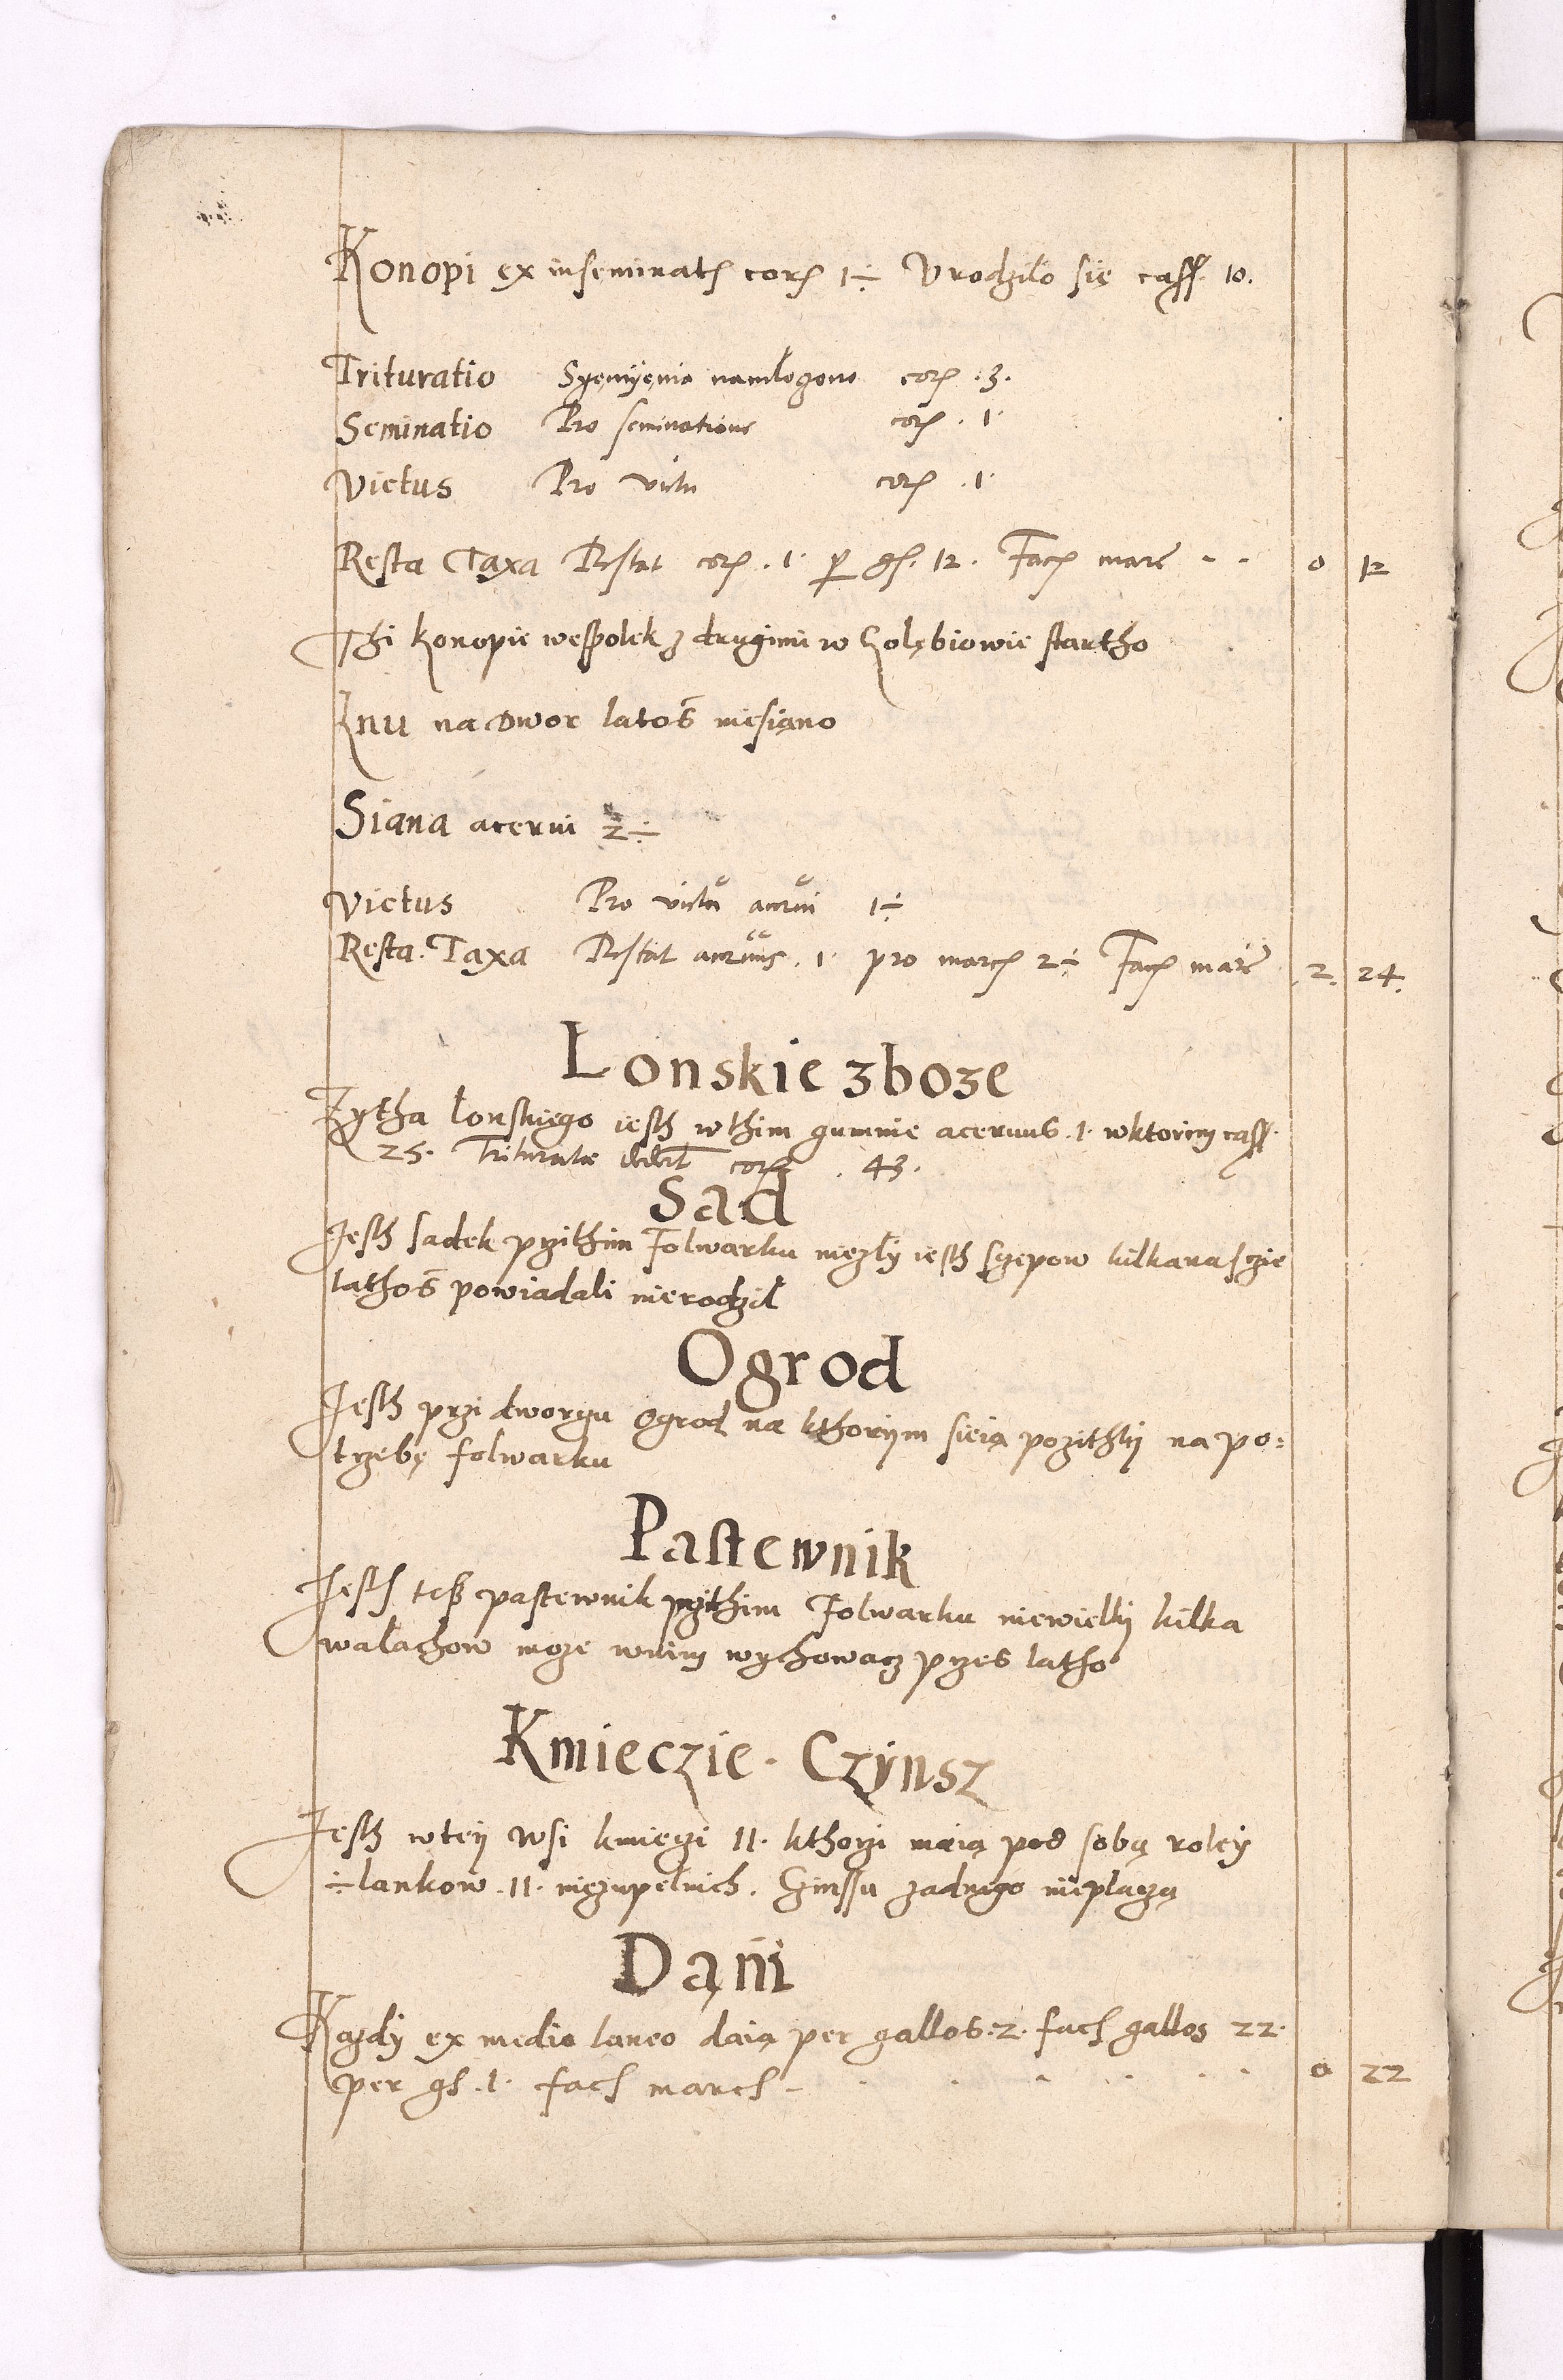 Konopi ex inseminatꝭ corꝭ 1÷ Vrodzilo się cass. 10.
Trituratio Syemyenia namlogono corꝭ .3.
Seminatio Pro seminatione corꝭ .1.
Victus Pro victu corꝭ .1.
Resta Taxa Restat corꝭ .1. per gs. 12. Facꝭ marc - - 0 12
Thi konopie wespolek z drugimi w Golębiowie startho
Lnu na dwor latoś niesiano
Siana acerui 2÷
Victus Pro victu acerui 1÷
Resta. Taxa Restat aceruus .1. pro marcꝭ 2÷ Facꝭ marc 2. 24.
Lonskie zboze
Zytha lonskiego iesth wthim gumnie aceruus .1. wktorim cass.
25. Triturate dederunt corꝭ . 43.
Sad
Jesth sadek przithim Folwarku niezly iesth sczepow kilkanasczie
lathoś powiadali nierodzil
Ogrod
Jesth przi dworzu Ogrod na kthorym sieią pozithki na po=
trzebę folwarku
Pastewnik
Jesth tesz pastewnik przithim Folwarku niewielki kilka
walachow moze wnim wychowacz przes latho
Kmieczie. Czynsz
Jesth wtey wsi kmieczi 11. kthorzi maią pod sobą roley
÷lankow .11. niezupelnich. Czinssu zadnego nieplaczą
Dani
Kazdy ex medio laneo daią per gallos .2. facſ gallos 22.
per gſ .1. facſ marcſ - . . . . . . 0 22